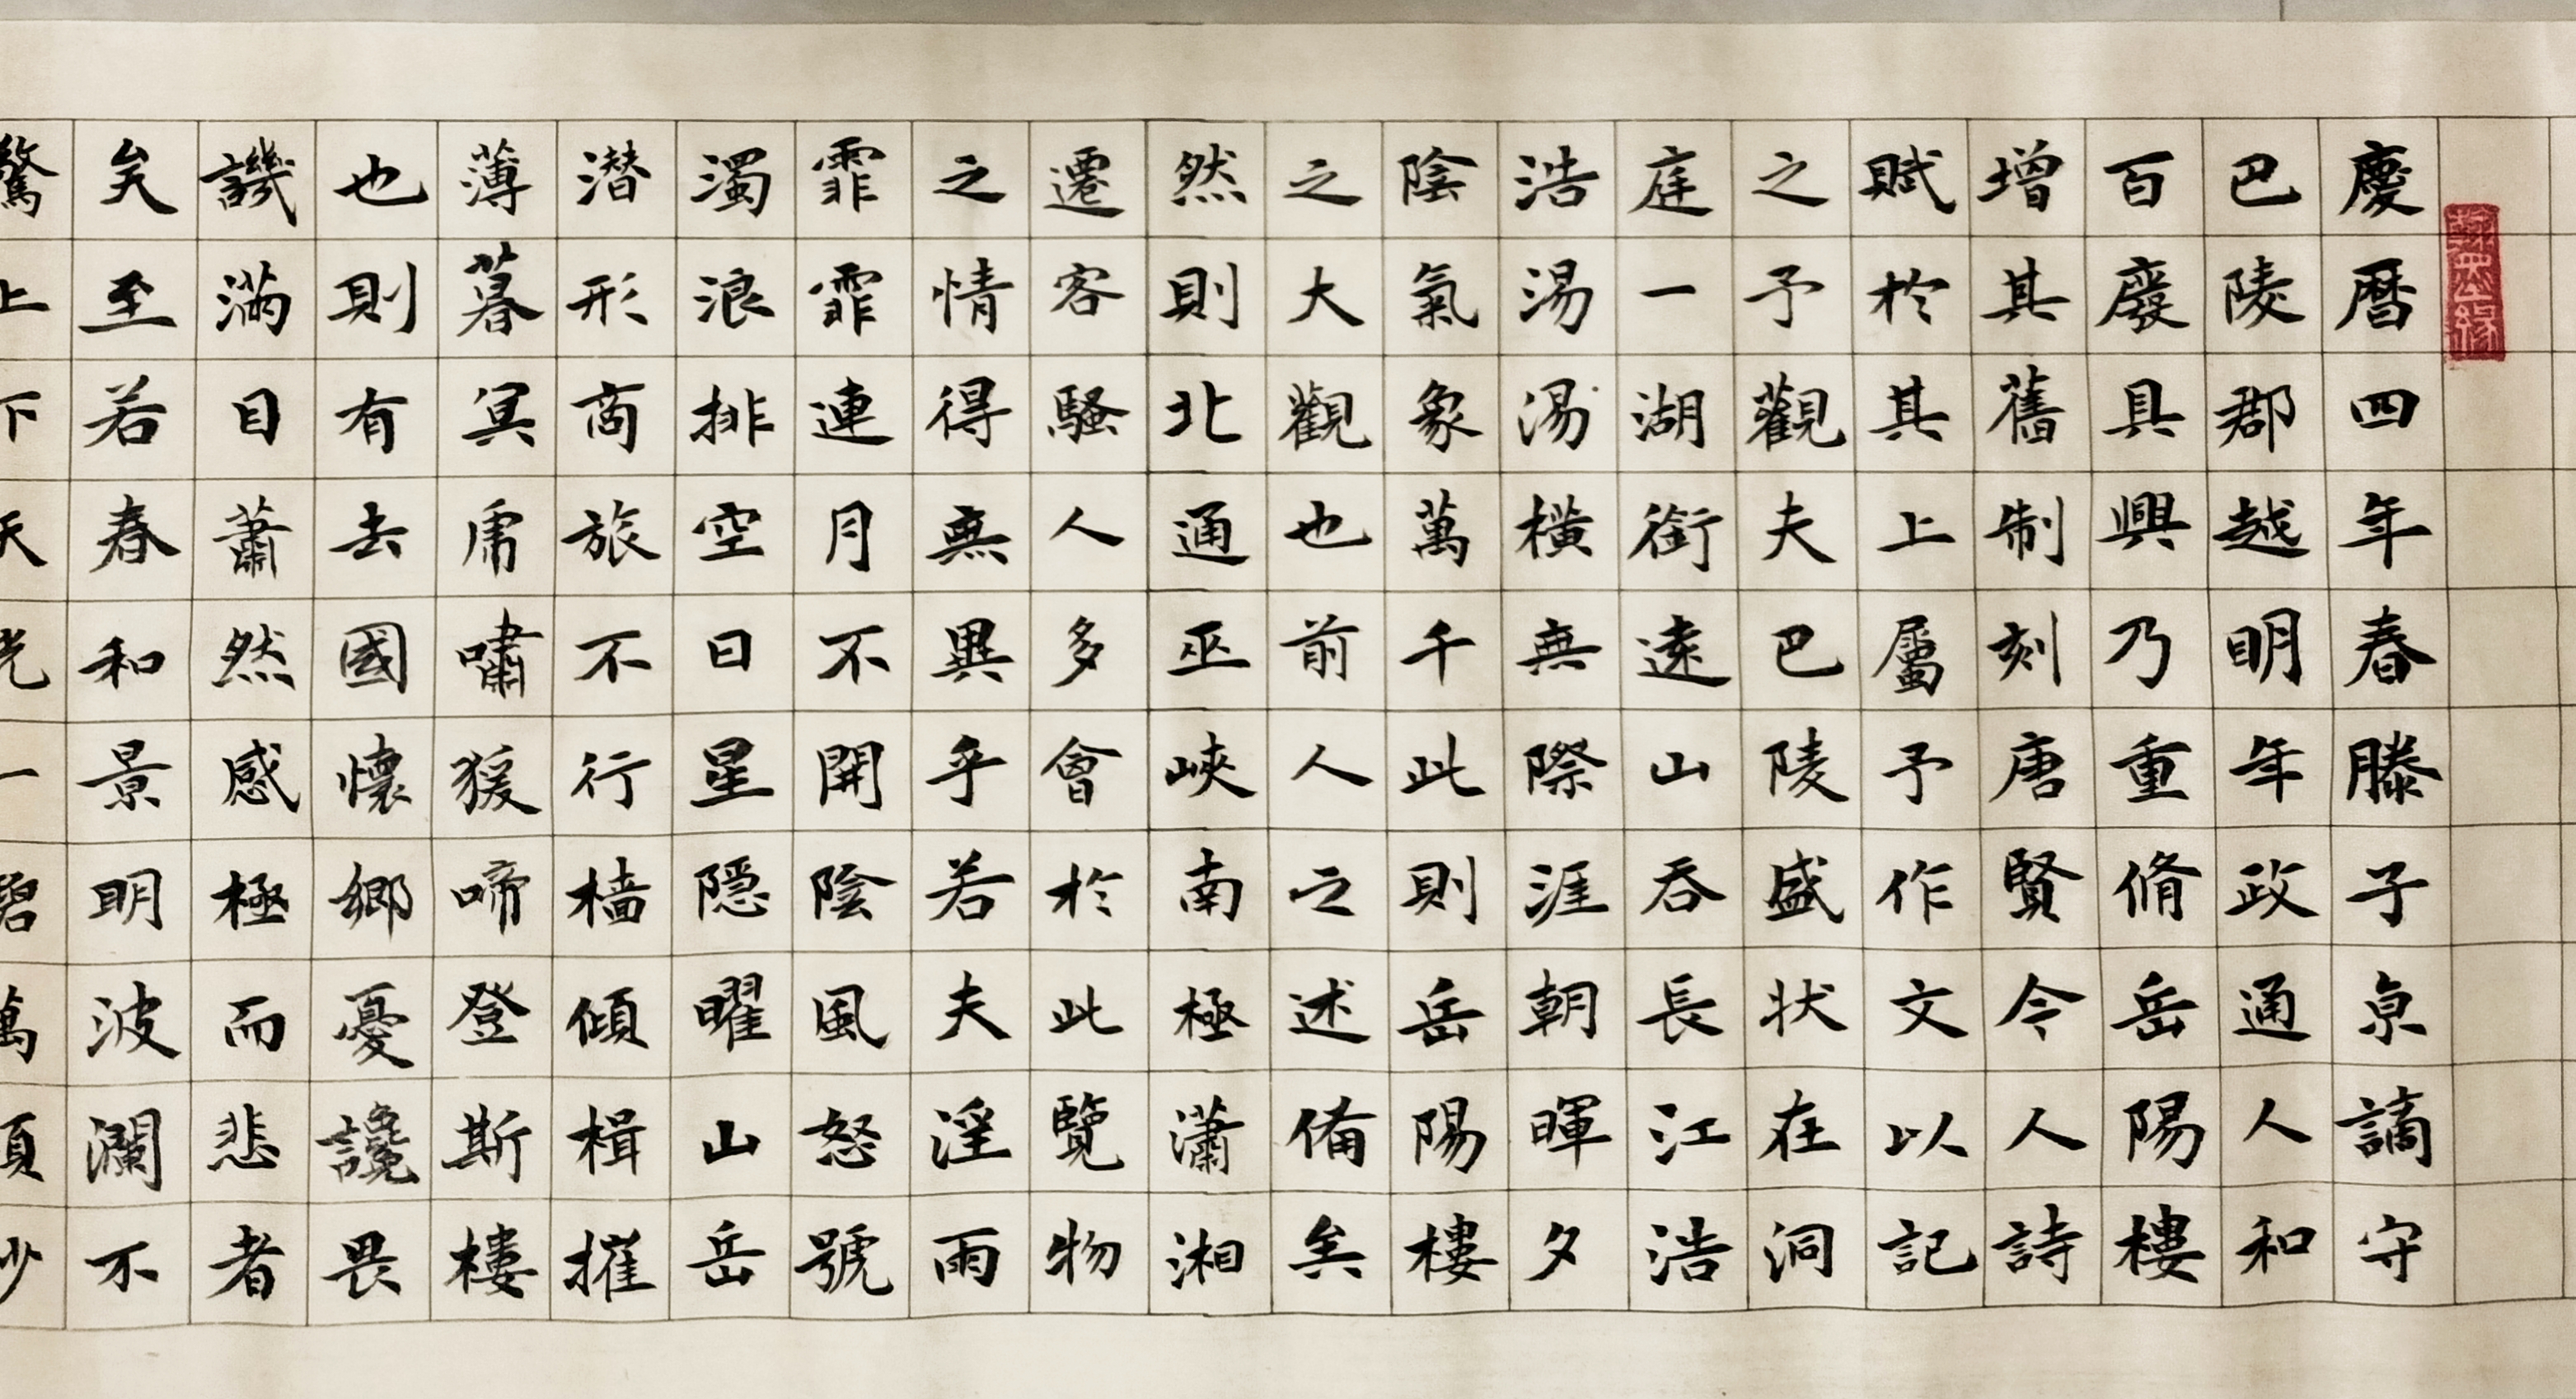 慶曆四年春滕子亰謫守
巴陵郡越明年政通人和
百廢具興乃重脩岳陽樓
增其舊制刻唐賢今人詩
賦於其上屬予作文以記
之予觀夫巴陵盛状在洞
庭一湖銜遠山吞長江浩
浩湯湯橫無際涯朝暉夕
陰氣象萬千此則岳陽樓
之大觀也前人之述備矣
然則北通巫峽南極瀟湘
遷客騷人多會於此覽物
之情得無異乎若夫淫雨
霏霏連月不開陰風怒號
濁浪排空日星隱曜山岳
潜形商旅不行檣傾楫摧
薄暮冥虎嘯猨啼登斯樓
也則有去國懷鄉憂讒畏
譏滿目蕭然感極而悲者
矣至若春和景明波瀾不
驚上下天光一碧萬頃沙